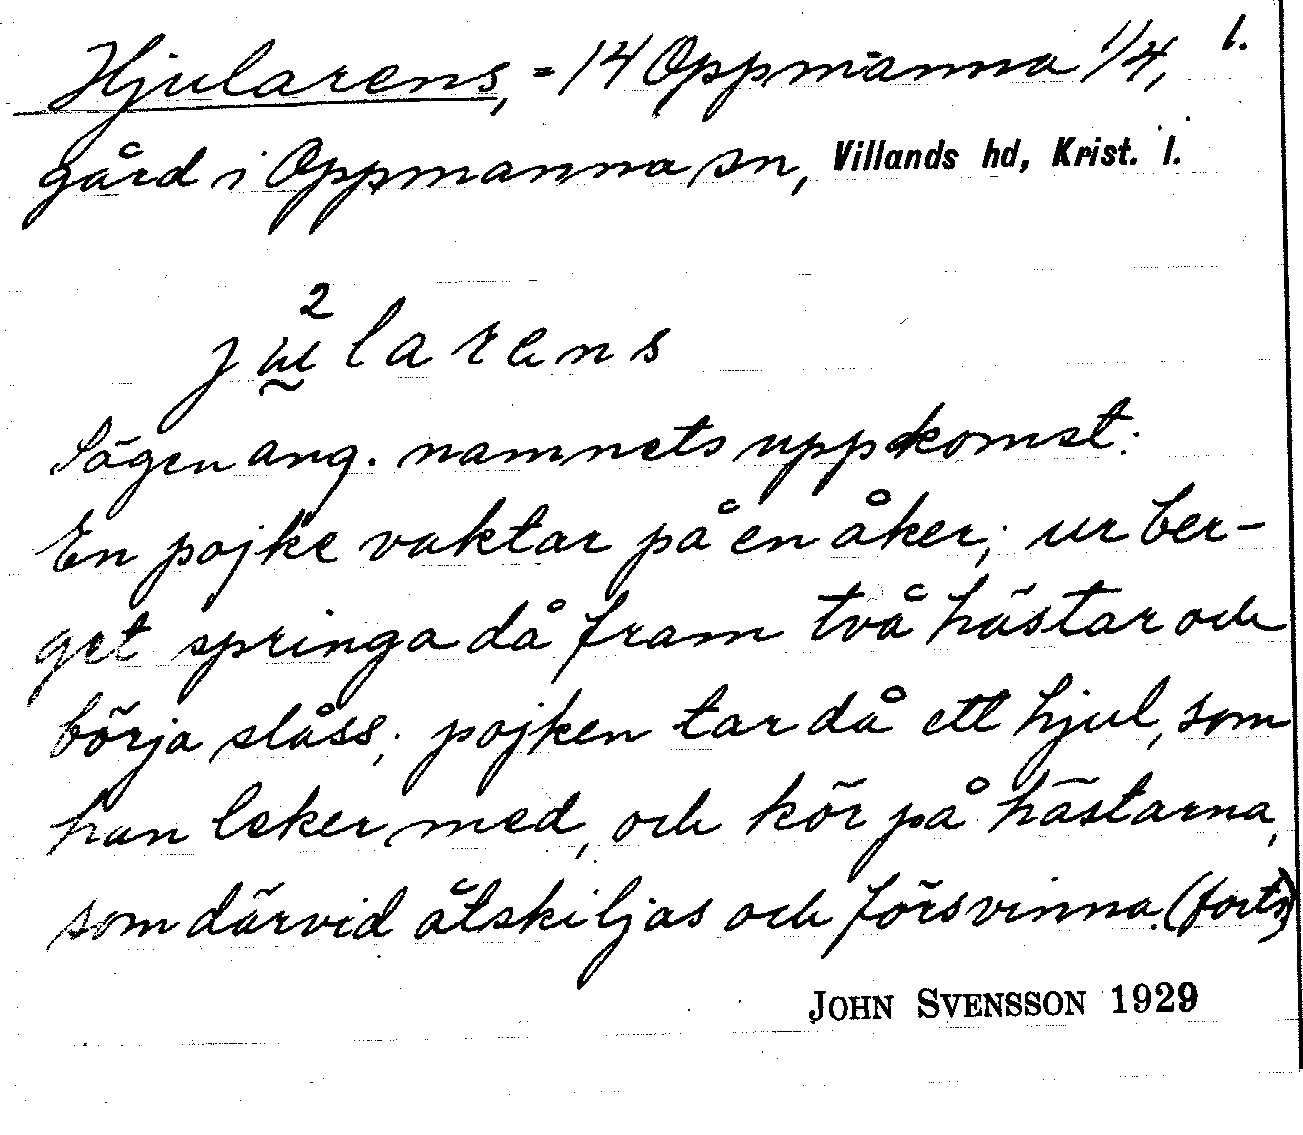 Hjularens, = 14 Oppmanna 1/4, 1.
gård i Oppmanna sn, Villands hd, Krist. l.
2
jularens
Sägen ang. namnets uppkomst:
En pojke vaktar på en åker; ur ber-
get springa då fram två hästar och
börja slåss; pojken tar då ett hjul, som
han leker med, och kör på hästarna,
som därvid åtskiljas och försvinna. (forts)
JOHN SVENSSON 1929